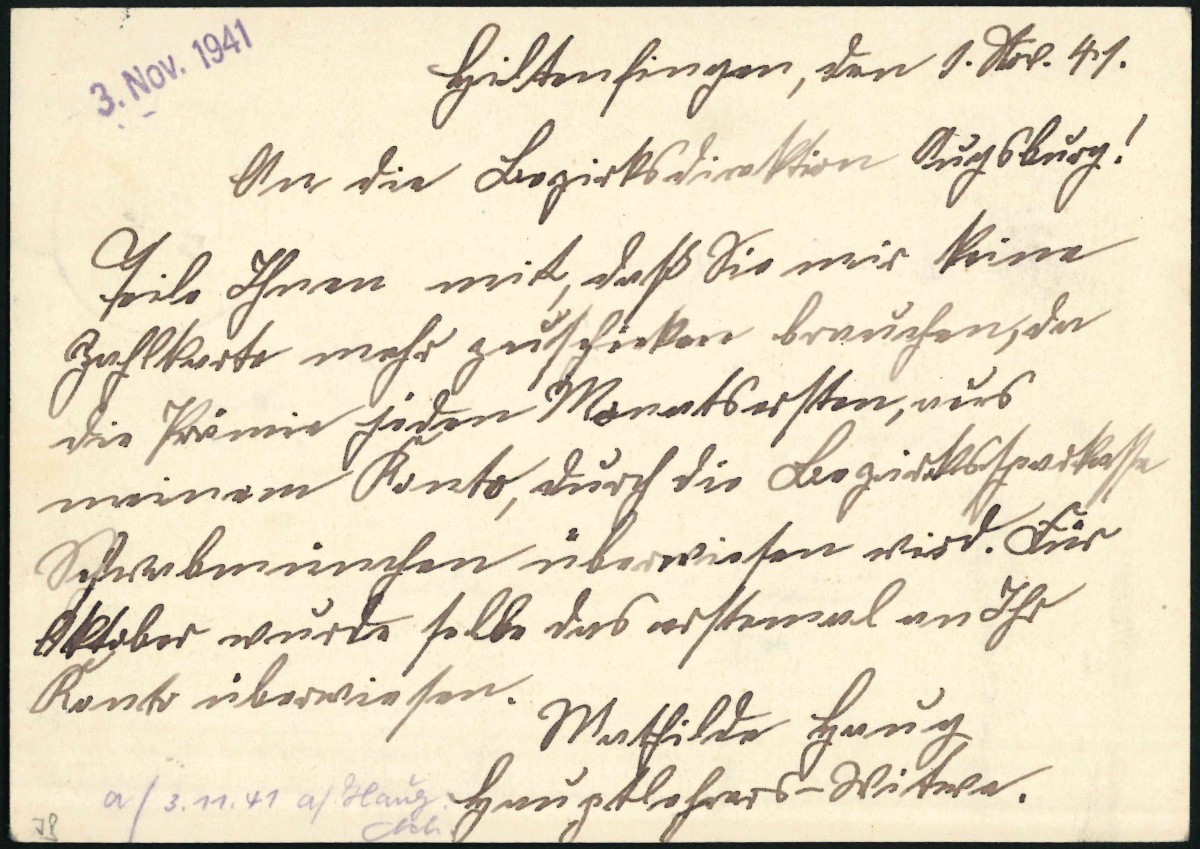 3. Nov. 1941
Hiltenfingen, den 1. Nov. 41.
An die Bezirksdirektion Augsburg!
Teile Ihnen mit, daß Sie mir keine
Zahlkarte mehr zuschicken brauchen, da
die Prämie jeden Monatsersten, aus
meinem Konto, durch die Bezirkssparkasse
Schwabmünchen überwiesen wird. Für
Oktober wurde selbe das erstemal an Ihr
Konto überwiesen.
Mathilde Haug
Hauptlehrers-Witwe.
a/ 3.11.41 a/ Haug